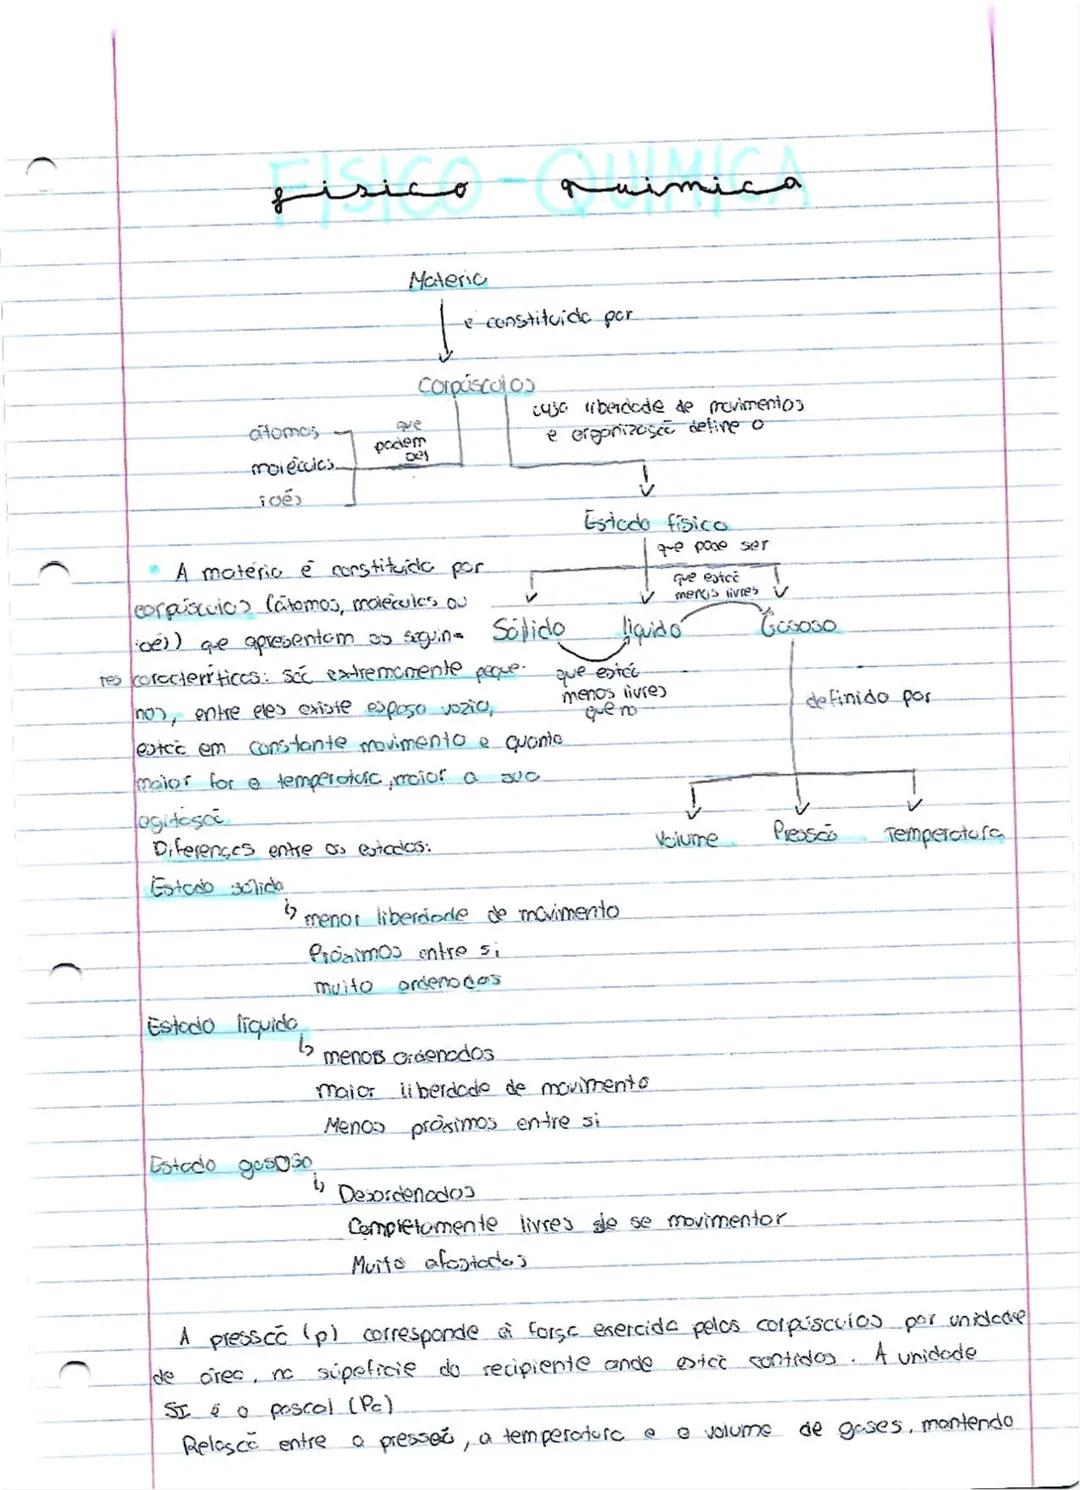 FISICO-QUIMICA
fisico quimica
Materia
é constituida por
Corpúsculos
cuja liberdade de movimentos
e organização define o
que
podem
ser
átomos
moléculas
iões
Estado físico
que pode ser
que está
menos livres
Sólido líquido Gasoso
que está
menos livres
que no
definido por
Volume Pressão Temperatura
• A matéria é constituida por
corpúsculos (átomos, moléculas ou
iões) que apresentam as seguin-
tes características: são extremamente peque-
nos, entre eles existe espaço vazio,
estão em constante movimento e quanto
maior for a temperatura, maior a sua
agitação
Diferenças entre os estados:
Estado sólido
↳ menor liberdade de movimento
Próximos entre si
muito ordenados
Estado líquido
↳ menos ordenados
maior liberdade de movimento
Menos próximos entre si
Estado gasoso
↳ Desordenados
Completamente livres de se movimentar
Muito afastados
A pressão (p) corresponde à força exercida pelos corpúsculos por unidade
de área, na súpeficie do recipiente onde estão contidos. A unidade
SI é o pascal (Pa)
Relação entre a pressão, a temperatura e o volume de gases, mantendo